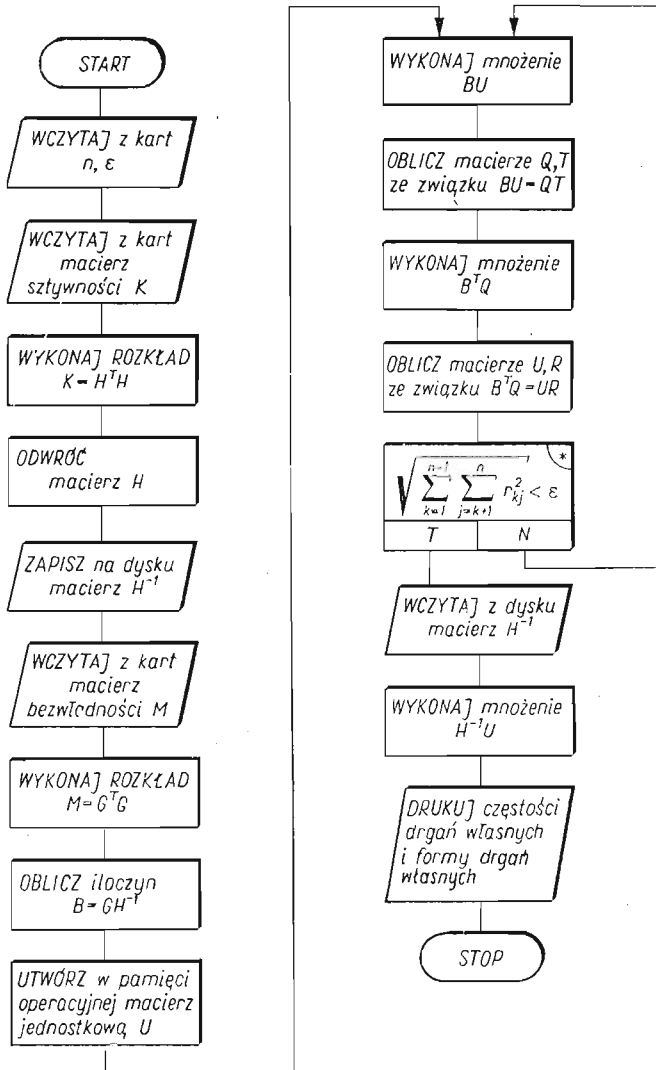 START
WCZYTAJ z kart
n, ε
WCZYTAJ z kart
macierz
sztywności K
WYKONAJ ROZKŁAD
K = HᵀH
ODWRÓĆ
macierz H
ZAPISZ na dysku
macierz H⁻¹
WCZYTAJ z kart
macierz
bezwłedności M
WYKONAJ ROZKŁAD
M = GᵀG
OBLICZ iloczyn
B = GH⁻¹
UTWÓRZ w pamięci
operacyjnej macierz
jednostkową U
WYKONAJ mnożenie
BU
OBLICZ macierze Q,T
ze związku BU = QT
WYKONAJ mnożenie
BᵀQ
OBLICZ macierze U,R
ze związku BᵀQ = UR
*
√ n-1 ∑ k=1 n ∑ j=k+1 r²kj < ε
T N
WCZYTAJ z dysku
macierz H⁻¹
WYKONAJ mnożenie
H⁻¹U
DRUKUJ częstości
drgań własnych
i formy drgań
własnych
STOP